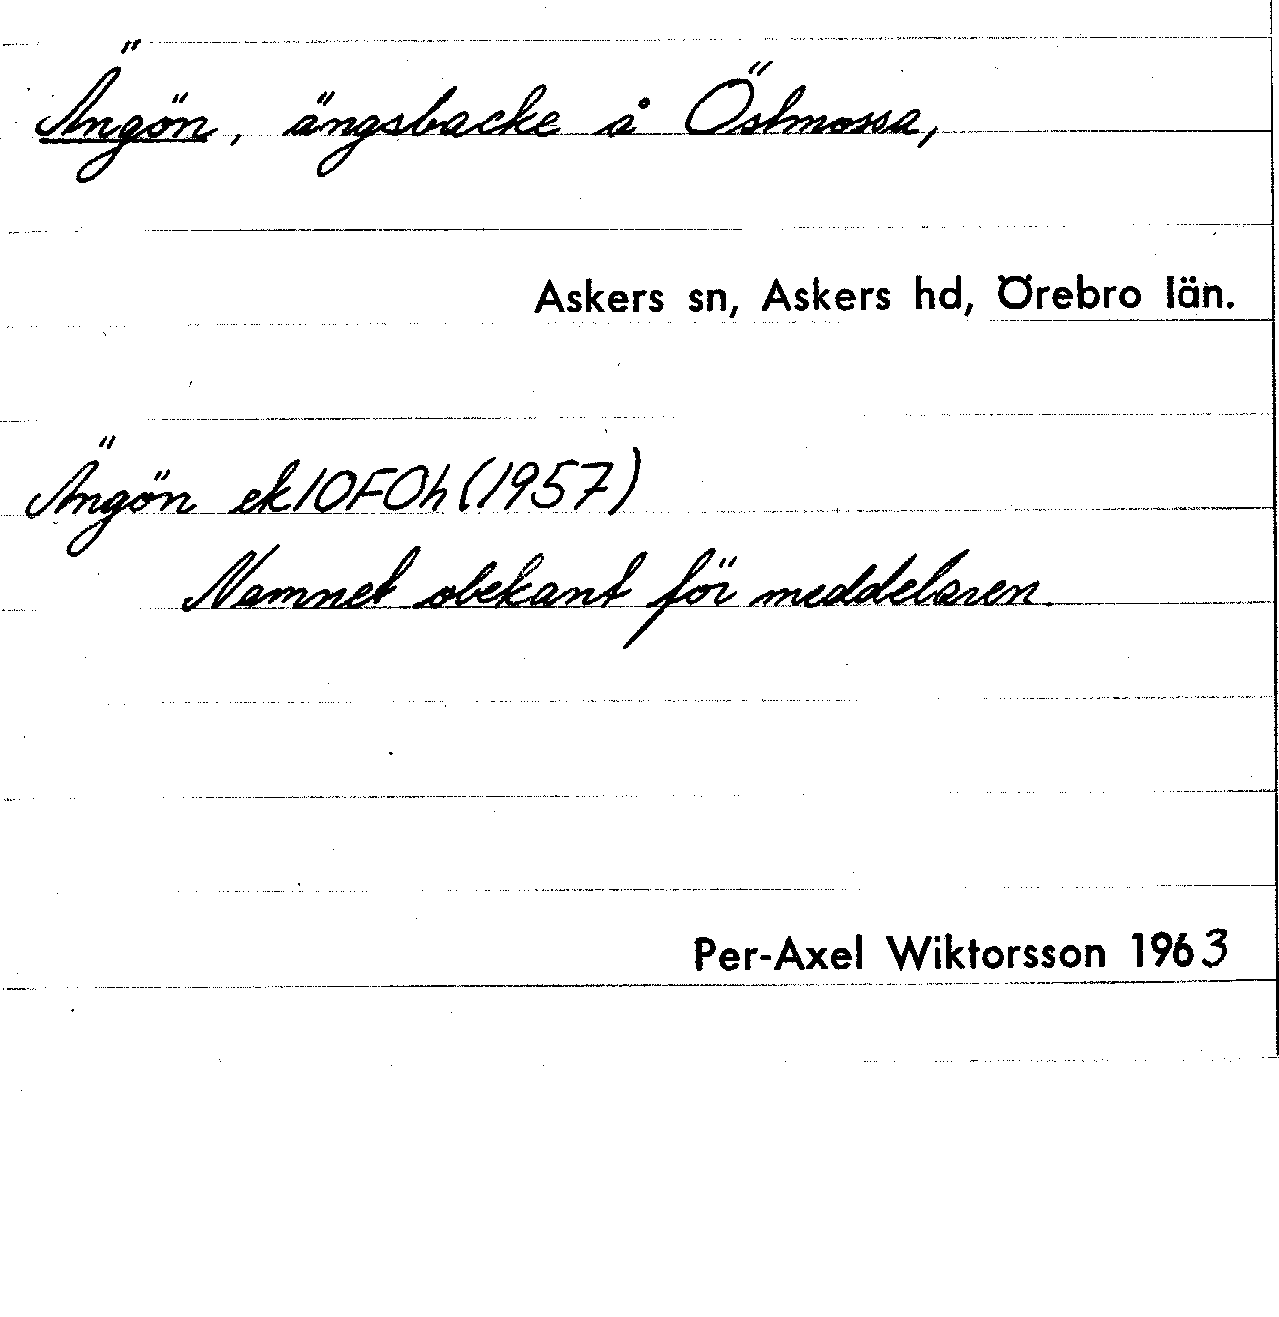 Ängön, ängsbacke å Östmossa,
Askers sn, Askers hd, Örebro län.
Ängön ek10F0h (1957)
Namnet obekant för meddelaren.
Per-Axel Wiktorsson 1963